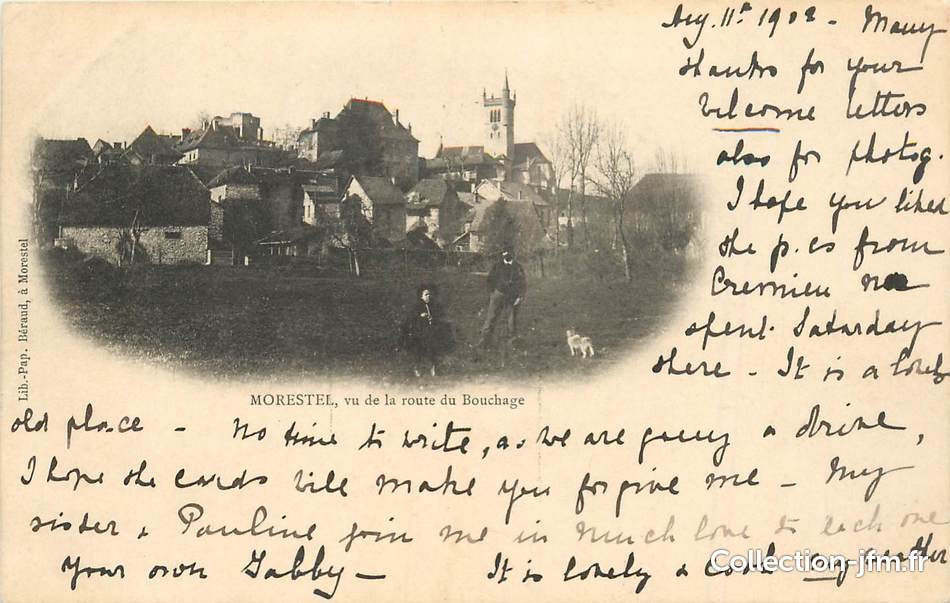 Aug. 11th 1902 - Many
thanks for your
welcome letters
also for photog.
I hope you liked
the p.cs from
Cremieu we
spent Saturday
there. - It is a lovely
Lib.-Pap. Béraud, à Morestel
MORESTEL, vu de la route du Bouchage
old place - No time to write, as we are going a drive,
I hope the cards will make you forgive me - My
sister & Pauline join me in much love to each one
Your own Gabby -
It is lovely & cool
Collection-jfm.fr